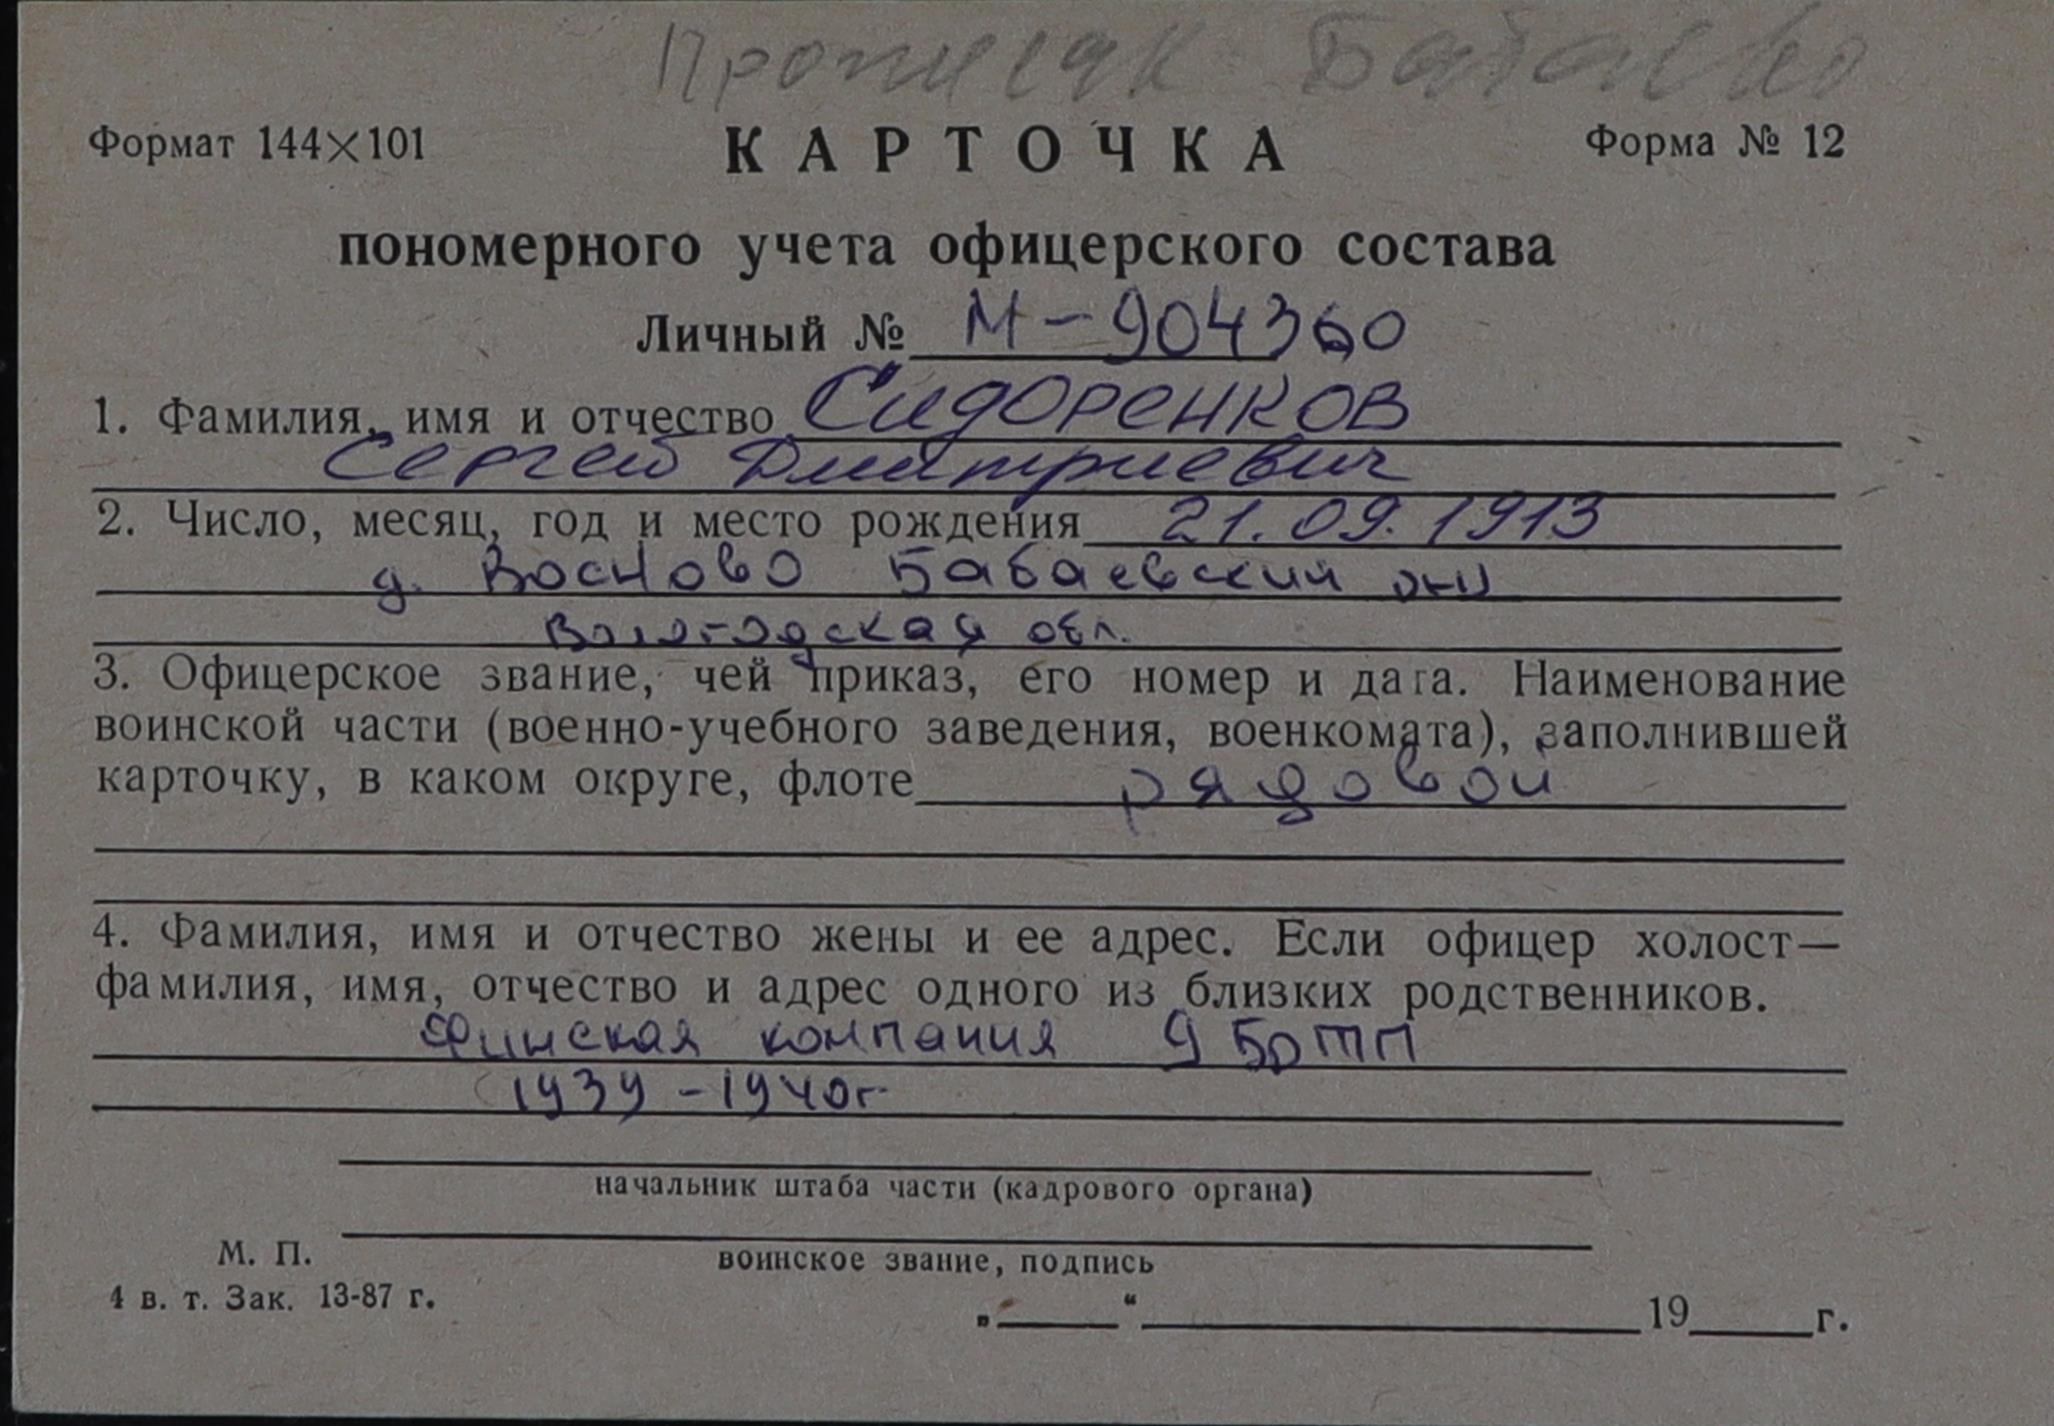 Бабаево
Формат 144×101 КАРТОЧКА Форма № 12
пономерного учета офицерского состава
Личный № М-904360
1. Фамилия, имя и отчество Сидоренков
Сергей Дмитриевич
2. Число, месяц, год и место рождения 21.09.1913
д. Восново Бабаевский р-н
Вологодская обл.
3. Офицерское звание, чей приказ, его номер и дата. Наименование
воинской части (военно-учебного заведения, военкомата), заполнившей
карточку, в каком округе, флоте рядовой
4. Фамилия, имя и отчество жены и ее адрес. Если офицер холост—
фамилия, имя, отчество и адрес одного из близких родственников.
Финская компания 9
1939-1940г.
начальник штаба части (кадрового органа)
М. П.
воинское звание, подпись
4 в. т. Зак. 13-87 г.
„ “ 19 г.